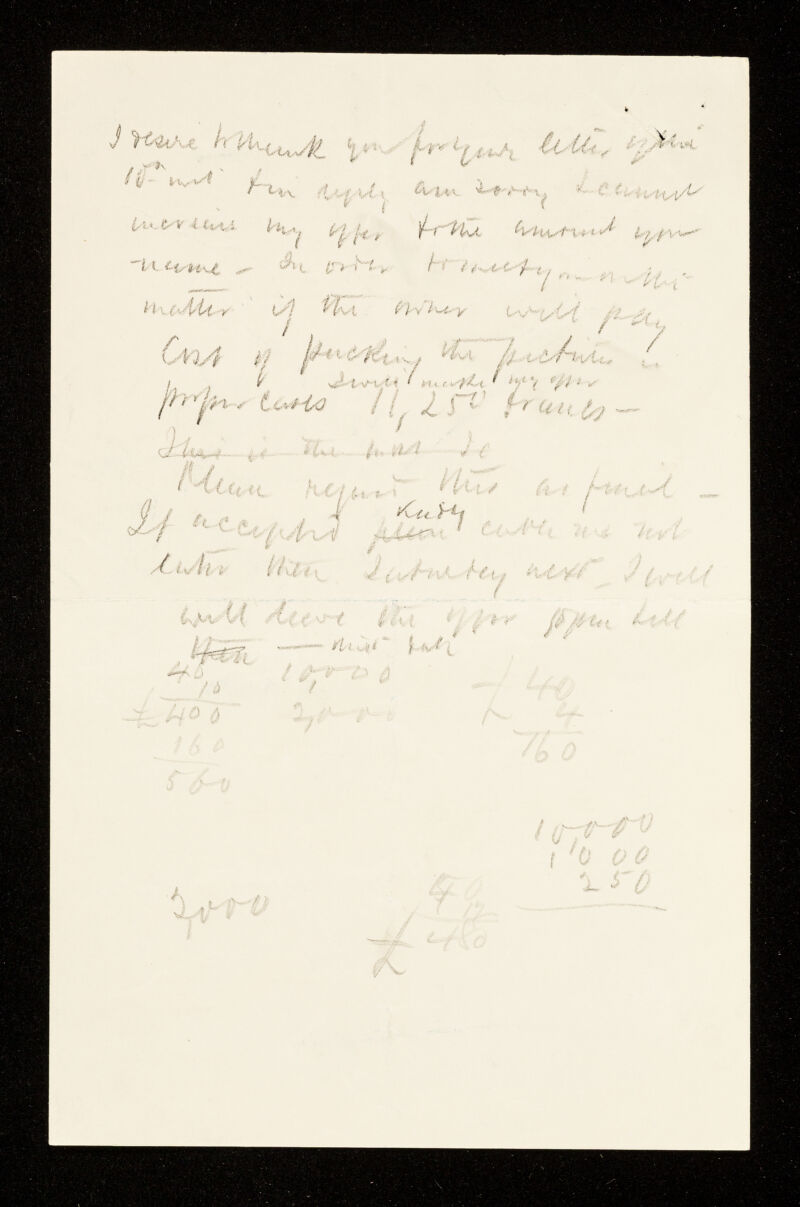 I desire to thank you for your letter of the
10th inst & in reply am sorry I cannot
increase my offer to the amount you
name - In order to meet you on this
matter if the owner will pay
Cost of packing the pictures in
proper cases I will make my offer 11,250 francs -
This is the most I
Please regard this as final -
If accepted please Kindly cable me not
later then Saturday next - I will
will leave the offer open till
then — that date
40 10,000 £ 40
10 4
£400 2,000 160
160
560
10,000
1,000
250
2,000
40
12
£ 480